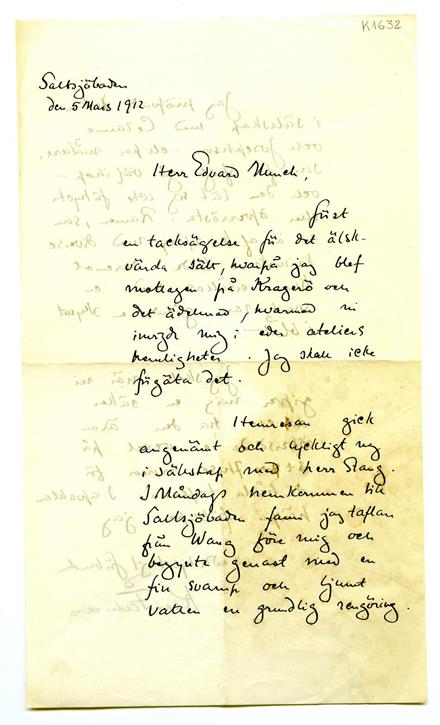 K1632
Saltsjöbaden
den 5 Mars 1912
Herr Edvard Munch,
Först
en tacksägelse för det älsk-
värda sätt, hvarpå jag blef
mottagen på Kragerö och
det ädelmod, hvarmed ni
invigde mig i eder ateliers
hemligheter. Jag skall icke
förgäta det.
Hemresan gick
angenämt och lyckligt
i sällskap med herr Stang.
I Måndags hemkommen till
Saltsjöbaden fann jag taflan
från Wang före mig och
begynte genast med en
fin svamp och ljumt
vatten en grundlig rengöring.